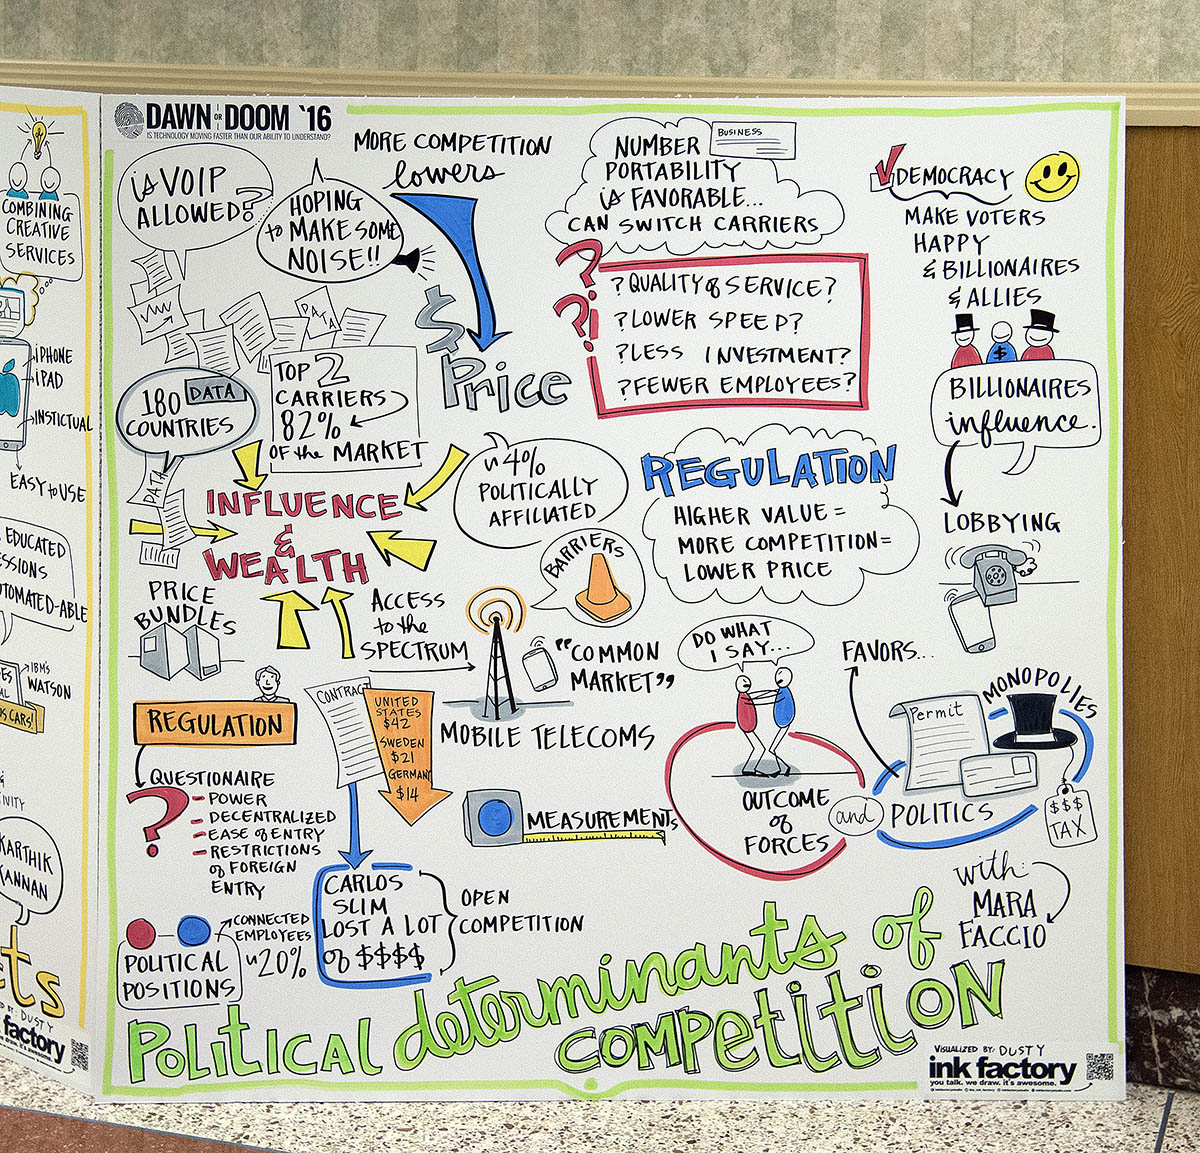 COMBINING
CREATIVE
SERVICES
iPHONE
iPAD
INSTICTUAL
EASY to USE
EDUCATED
IBM'S
WATSON
CARS!
KARTHIK
KANNAN
DUSTY
factory
DAWN OR DOOM '16
IS TECHNOLOGY MOVING FASTER THAN OUR ABILITY TO UNDERSTAND?
is VOIP
ALLOWED?
HOPING
to MAKE SOME
NOISE!!
MORE COMPETITION
lowers
$
Price
DATA
TOP 2
CARRIERS
82%
OF the MARKET
180 DATA
COUNTRIES
DATA
INFLUENCE
&
WEALTH
PRICE
BUNDLES
ACCESS
to the
SPECTRUM
NUMBER
PORTABILITY
is FAVORABLE...
CAN SWITCH CARRIERS
BUSINESS
? QUALITY of SERVICE?
? LOWER SPEED?
? LESS INVESTMENT?
? FEWER EMPLOYEES?
DEMOCRACY
MAKE VOTERS
HAPPY
& BILLIONAIRES
& ALLIES
$
BILLIONAIRES
influence.
LOBBYING
~4%
POLITICALLY
AFFILIATED
BARRIERS
REGULATION
HIGHER VALUE =
MORE COMPETITION =
LOWER PRICE
"COMMON
MARKET"
MOBILE TELECOMS
DO WHAT
I SAY...
OUTCOME
of
FORCES
and
POLITICS
FAVORS...
Permit
MONOPOLIES
$$$
TAX
REGULATION
QUESTIONAIRE
?
- POWER
- DECENTRALIZED
- EASE of ENTRY
- RESTRICTIONS
of FOREIGN
ENTRY
CONTRACT
UNITED
STATES
$42
SWEDEN
$21
GERMANY
$14
MEASUREMENTS
CARLOS
SLIM
LOST A LOT
OF $$$$
OPEN
COMPETITION
CONNECTED
EMPLOYEES
~20%
POLITICAL
POSITIONS
with:
MARA
FACCIO
POLITICAL determinants of
COMPETITION
VISUALIZED BY: DUSTY
ink factory
you talk. we draw. it's awesome.